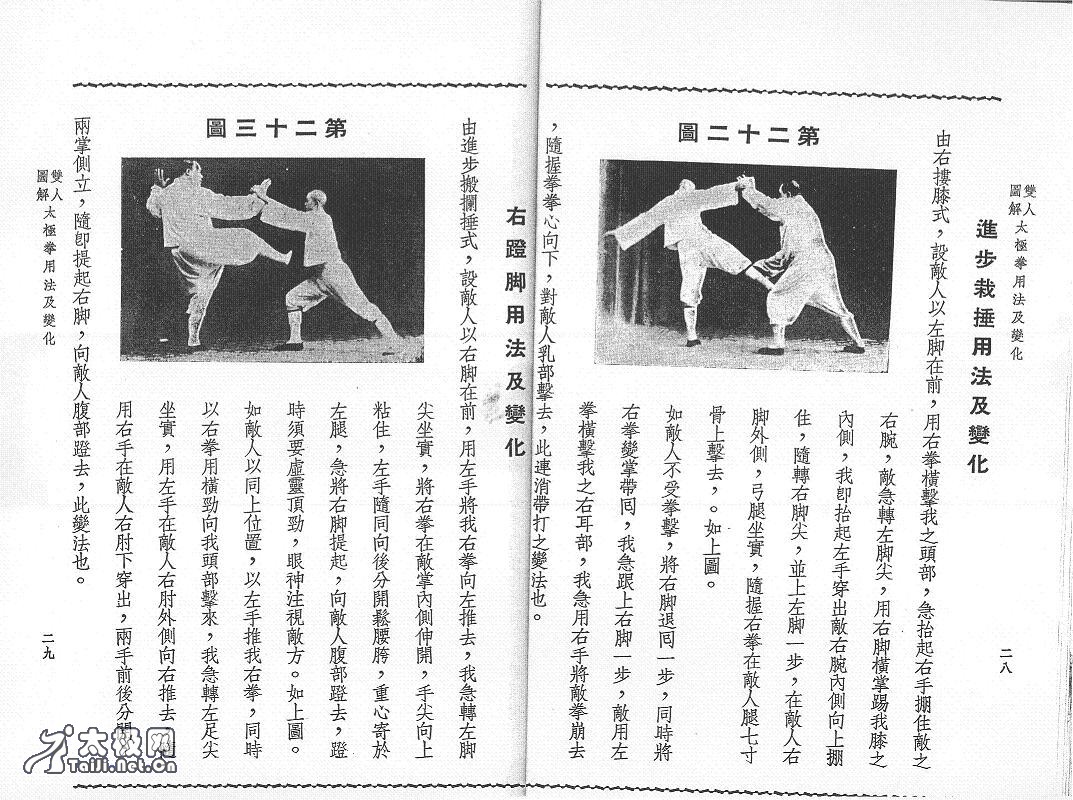 雙人圖解 太極拳用法及變化
二八
進步栽捶用法及變化
由右摟膝式，設敵人以左脚在前，用右拳橫擊我之頭部，急抬起右手掤住敵之
右腕，敵急轉左脚尖，用右脚橫掌踢我膝之
內側，我卽抬起左手穿出敵右腕內側向上掤
住，隨轉右脚尖，並上左脚一步，在敵人右
脚外側，弓腿坐實，隨握右拳在敵人腿七寸
骨上擊去，。如上圖。
如敵人不受拳擊，將右脚退囘一步，同時將
右拳變掌帶囘，我急跟上右脚一步，敵用左
拳橫擊我之右耳部，我急用右手將敵拳崩去
，隨握拳拳心向下，對敵人乳部擊去，此連消帶打之變法也。
第二十二圖
右蹬脚用法及變化
由進步搬攔捶式，設敵人以右脚在前，用左手將我右拳向左推去，我急轉左脚
尖坐實，將右拳在敵掌內側伸開，手尖向上
粘住，左手隨同向後分開鬆腰胯，重心寄於
左腿，急將右脚提起，向敵人腹部蹬去，蹬
時須要虛靈頂勁，眼神注視敵方。如上圖。
如敵人以同上位置，以左手推我右拳，同時
以右拳用橫勁向我頭部擊來，我急轉左足尖
坐實，用左手在敵人右肘外側向右推去
用右手在敵人右肘下穿出，兩手前後分開
兩掌側立，隨卽提起右脚，向敵人腹部蹬去，此變法也。
第二十三圖
雙人圖解 太極拳用法及變化
二九
太极网
Taiji.net.cn